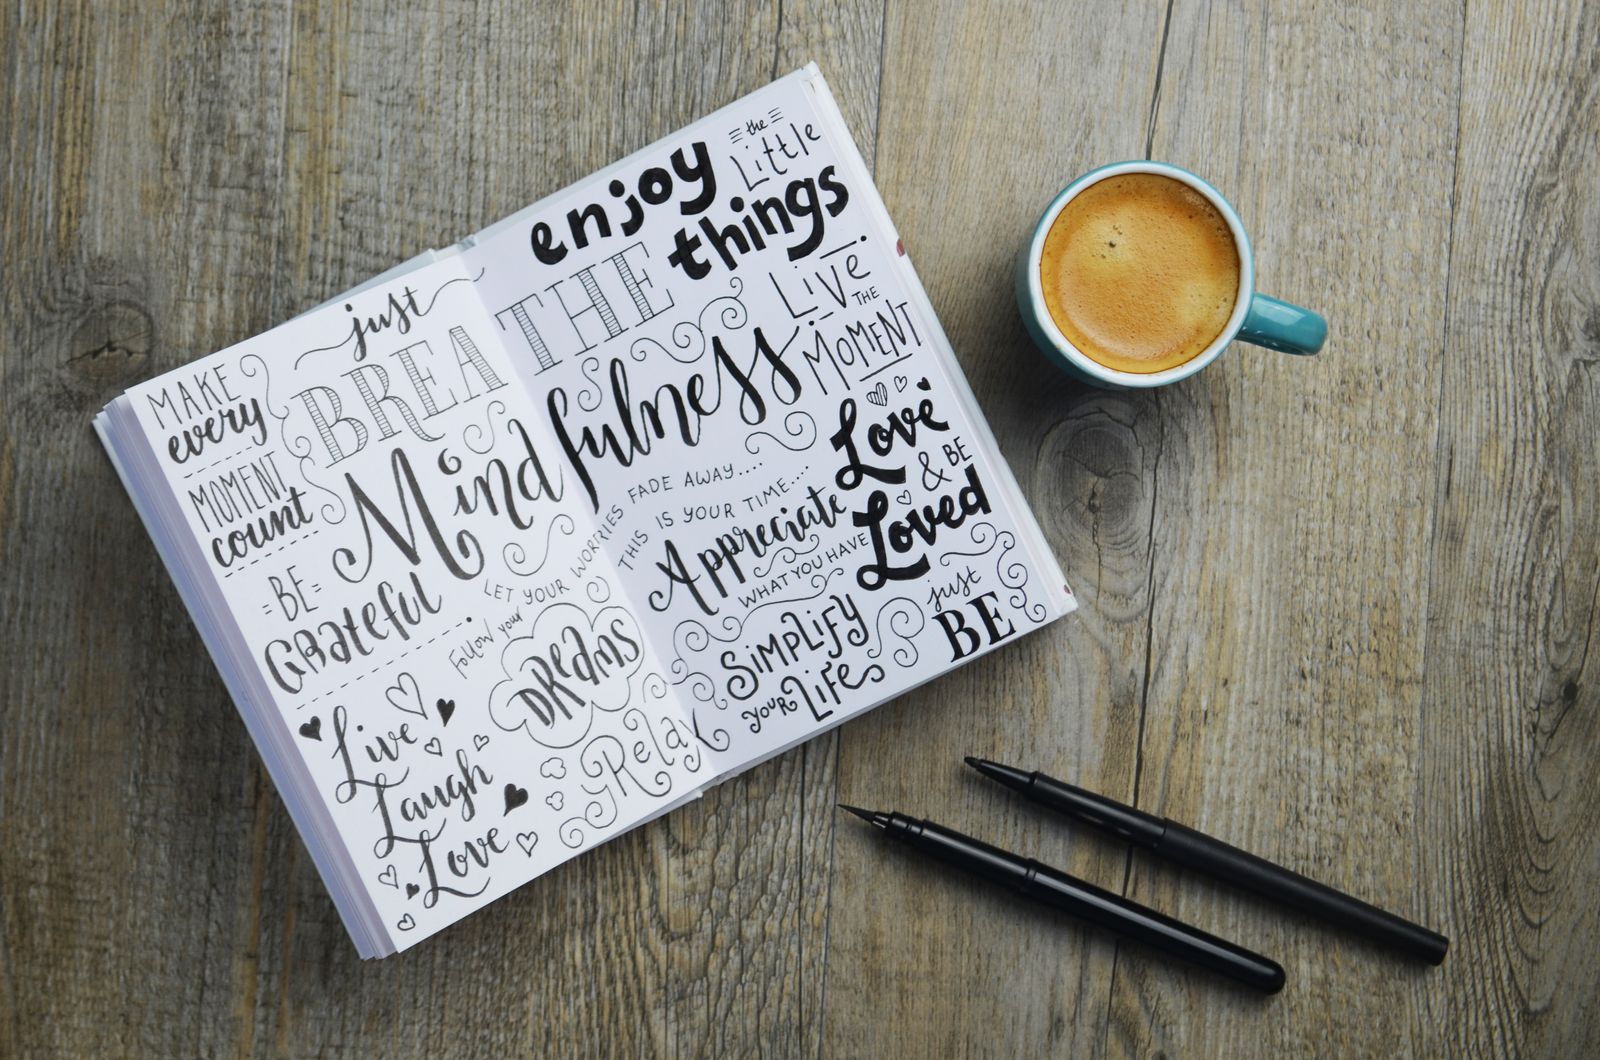 MAKE
every
MOMENT
count
just
BREATHE
Mindfulness
BE
Grateful
LET YOUR WORRIES FADE AWAY.....
THIS IS YOUR TIME...
Follow your
DREAMS
Live
Laugh
Love
Relax
enjoy
the
Little
things
Live
THE
MOMENT
Love
& BE
Loved
Appreciate
WHAT YOU HAVE
SIMPLIFY
YOUR LIFE
just
BE